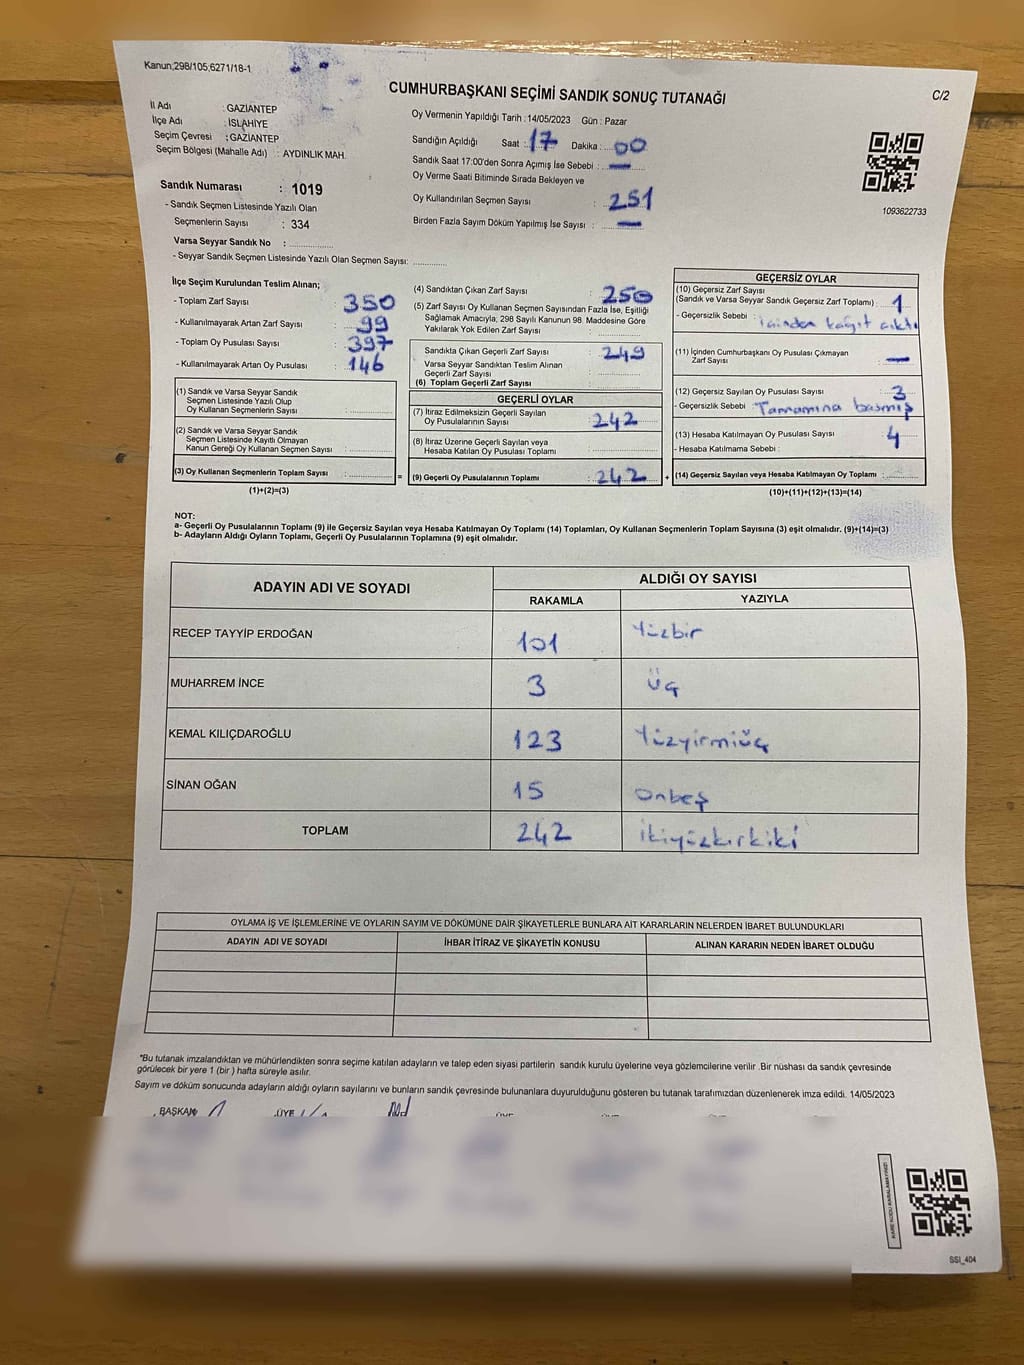 Kanun;298/105;6271/18-1
CUMHURBAŞKANI SEÇİMİ SANDIK SONUÇ TUTANAĞI
C/2
İl Adı : GAZİANTEP
İlçe Adı : İSLAHİYE
Seçim Çevresi : GAZİANTEP
Seçim Bölgesi (Mahalle Adı) : AYDINLIK MAH.
Sandık Numarası : 1019
- Sandık Seçmen Listesinde Yazılı Olan
Seçmenlerin Sayısı : 334
Varsa Seyyar Sandık No : ..............
- Seyyar Sandık Seçmen Listesinde Yazılı Olan Seçmen Sayısı: ............
Oy Vermenin Yapıldığı Tarih : 14/05/2023 Gün : Pazar
Sandığın Açıldığı Saat : 17 Dakika : 00
Sandık Saat 17:00'den Sonra Açımış İse Sebebi : —
Oy Verme Saati Bitiminde Sırada Bekleyen ve
Oy Kullandırılan Seçmen Sayısı : 251
Birden Fazla Sayım Döküm Yapılmış İse Sayısı : —
1093622733
İlçe Seçim Kurulundan Teslim Alınan;
- Toplam Zarf Sayısı : 350
- Kullanılmayarak Artan Zarf Sayısı : 99
- Toplam Oy Pusulası Sayısı : 397
- Kullanılmayarak Artan Oy Pusulası : 146
(1) Sandık ve Varsa Seyyar Sandık
Seçmen Listesinde Yazılı Olup
Oy Kullanan Seçmenlerin Sayısı : ............
(2) Sandık ve Varsa Seyyar Sandık
Seçmen Listesinde Kayıtlı Olmayan
Kanun Gereği Oy Kullanan Seçmen Sayısı : ............
(3) Oy Kullanan Seçmenlerin Toplam Sayısı : ............ =
(1)+(2)=(3)
(4) Sandıktan Çıkan Zarf Sayısı : 250
(5) Zarf Sayısı Oy Kullanan Seçmen Sayısından Fazla İse, Eşitliği
Sağlamak Amacıyla, 298 Sayılı Kanunun 98. Maddesine Göre
Yakılarak Yok Edilen Zarf Sayısı : ............
Sandıkta Çıkan Geçerli Zarf Sayısı : 249
Varsa Seyyar Sandıktan Teslim Alınan
Geçerli Zarf Sayısı : ............
(6) Toplam Geçerli Zarf Sayısı : ............
GEÇERLİ OYLAR
(7) İtiraz Edilmeksizin Geçerli Sayılan
Oy Pusulalarının Sayısı : 242
(8) İtiraz Üzerine Geçerli Sayılan veya
Hesaba Katılan Oy Pusulası Toplamı : ............
(9) Geçerli Oy Pusulalarının Toplamı : 242 +
GEÇERSİZ OYLAR
(10) Geçersiz Zarf Sayısı
(Sandık ve Varsa Seyyar Sandık Geçersiz Zarf Toplamı) : 1
- Geçersizlik Sebebi : içinden kağıt çıktı
(11) İçinden Cumhurbaşkanı Oy Pusulası Çıkmayan
Zarf Sayısı : —
(12) Geçersiz Sayılan Oy Pusulası Sayısı : 3
- Geçersizlik Sebebi : Tamamına basmış
(13) Hesaba Katılmayan Oy Pusulası Sayısı : 4
- Hesaba Katılmama Sebebi :
(14) Geçersiz Sayılan veya Hesaba Katılmayan Oy Toplamı : ............
(10)+(11)+(12)+(13)=(14)
NOT:
a- Geçerli Oy Pusulalarının Toplamı (9) ile Geçersiz Sayılan veya Hesaba Katılmayan Oy Toplamı (14) Toplamları, Oy Kullanan Seçmenlerin Toplam Sayısına (3) eşit olmalıdır. (9)+(14)=(3)
b- Adayların Aldığı Oyların Toplamı, Geçerli Oy Pusulalarının Toplamına (9) eşit olmalıdır.
ADAYIN ADI VE SOYADI
ALDIĞI OY SAYISI
RAKAMLA YAZIYLA
RECEP TAYYİP ERDOĞAN 101 Yüzbir
MUHARREM İNCE 3 Üç
KEMAL KILIÇDAROĞLU 123 Yüzyirmiüç
SİNAN OĞAN 15 onbeş
TOPLAM 242 ikiyüzkırkiki
OYLAMA İŞ VE İŞLEMLERİNE VE OYLARIN SAYIM VE DÖKÜMÜNE DAİR ŞİKAYETLERLE BUNLARA AİT KARARLARIN NELERDEN İBARET BULUNDUKLARI
ADAYIN ADI VE SOYADI İHBAR İTİRAZ VE ŞİKAYETİN KONUSU ALINAN KARARIN NEDEN İBARET OLDUĞU
"Bu tutanak imzalandıktan ve mühürlendikten sonra seçime katılan adayların ve talep eden siyasi partilerin sandık kurulu üyelerine veya gözlemcilerine verilir .Bir nüshası da sandık çevresinde
görülecek bir yere 1 (bir ) hafta süreyle asılır.
Sayım ve döküm sonucunda adayların aldığı oyların sayılarını ve bunların sandık çevresinde bulunanlara duyurulduğunu gösteren bu tutanak tarafımızdan düzenlenerek imza edildi. 14/05/2023
BAŞKAN ÜYE
KARE KODU KARALAMAYINIZ!
SSI_404